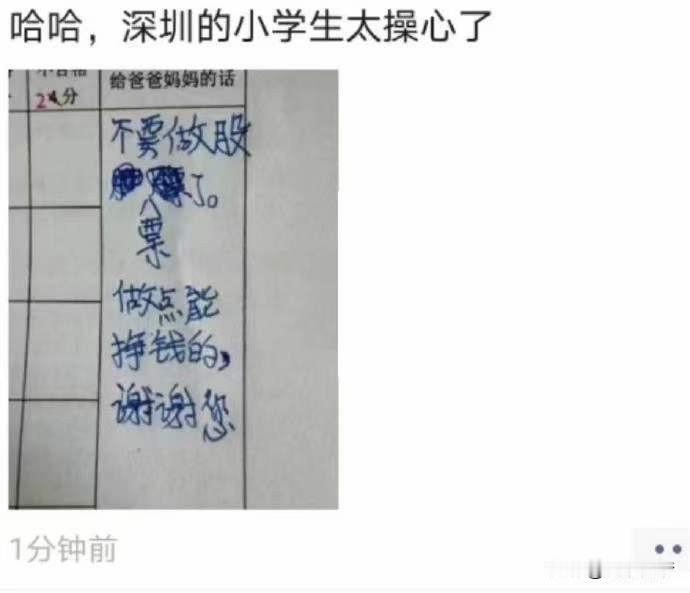 哈哈，深圳的小学生太操心了
给爸爸妈妈的话
2人分
不要做股
了。
票
做点能
挣钱的，
谢谢您
1分钟前